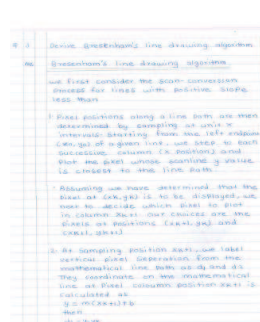 Derive Bresenham's line drawing algorithm
Bresenham's line drawing algorithm
we first consider the scan conversion
process for lines with positive slope
less than
Pixel positions along a line path are then
determined by sampling at unit x
intervals. Starting from the left endpoint
of a given line, we step to each
successive column (x position) and
Plot the pixel whose scanline y value
is closest to the line path
Assuming we have determined that the
pixel at (xk, yk) is to be displayed, we
next to decide which pixel to plot
in column xk+1. our choices are the
pixels at positions (xk+1, yk) and
(xk+1, yk+1)
At sampling position xk+1, we label
vertical pixel seperation from the
mathematical line path as d1 and d2
They coordinate on the mathematical
line at pixel coloumn position xk+1 is
calculated as
y = m(xk+1)+b